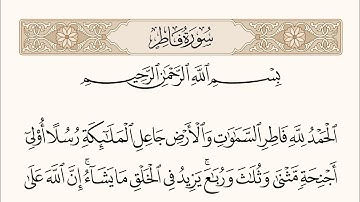 سُورَةُ فَاطِرٍ
بِسْمِ اللَّهِ الرَّحْمَٰنِ الرَّحِيمِ
الْحَمْدُ لِلَّهِ فَاطِرِ السَّمَاوَاتِ وَالْأَرْضِ جَاعِلِ الْمَلَائِكَةِ رُسُلًا أُولِي
أَجْنِحَةٍ مَّثْنَىٰ وَثُلَاثَ وَرُبَاعَ ۚ يَزِيدُ فِي الْخَلْقِ مَا يَشَاءُ ۚ إِنَّ اللَّهَ عَلَىٰ